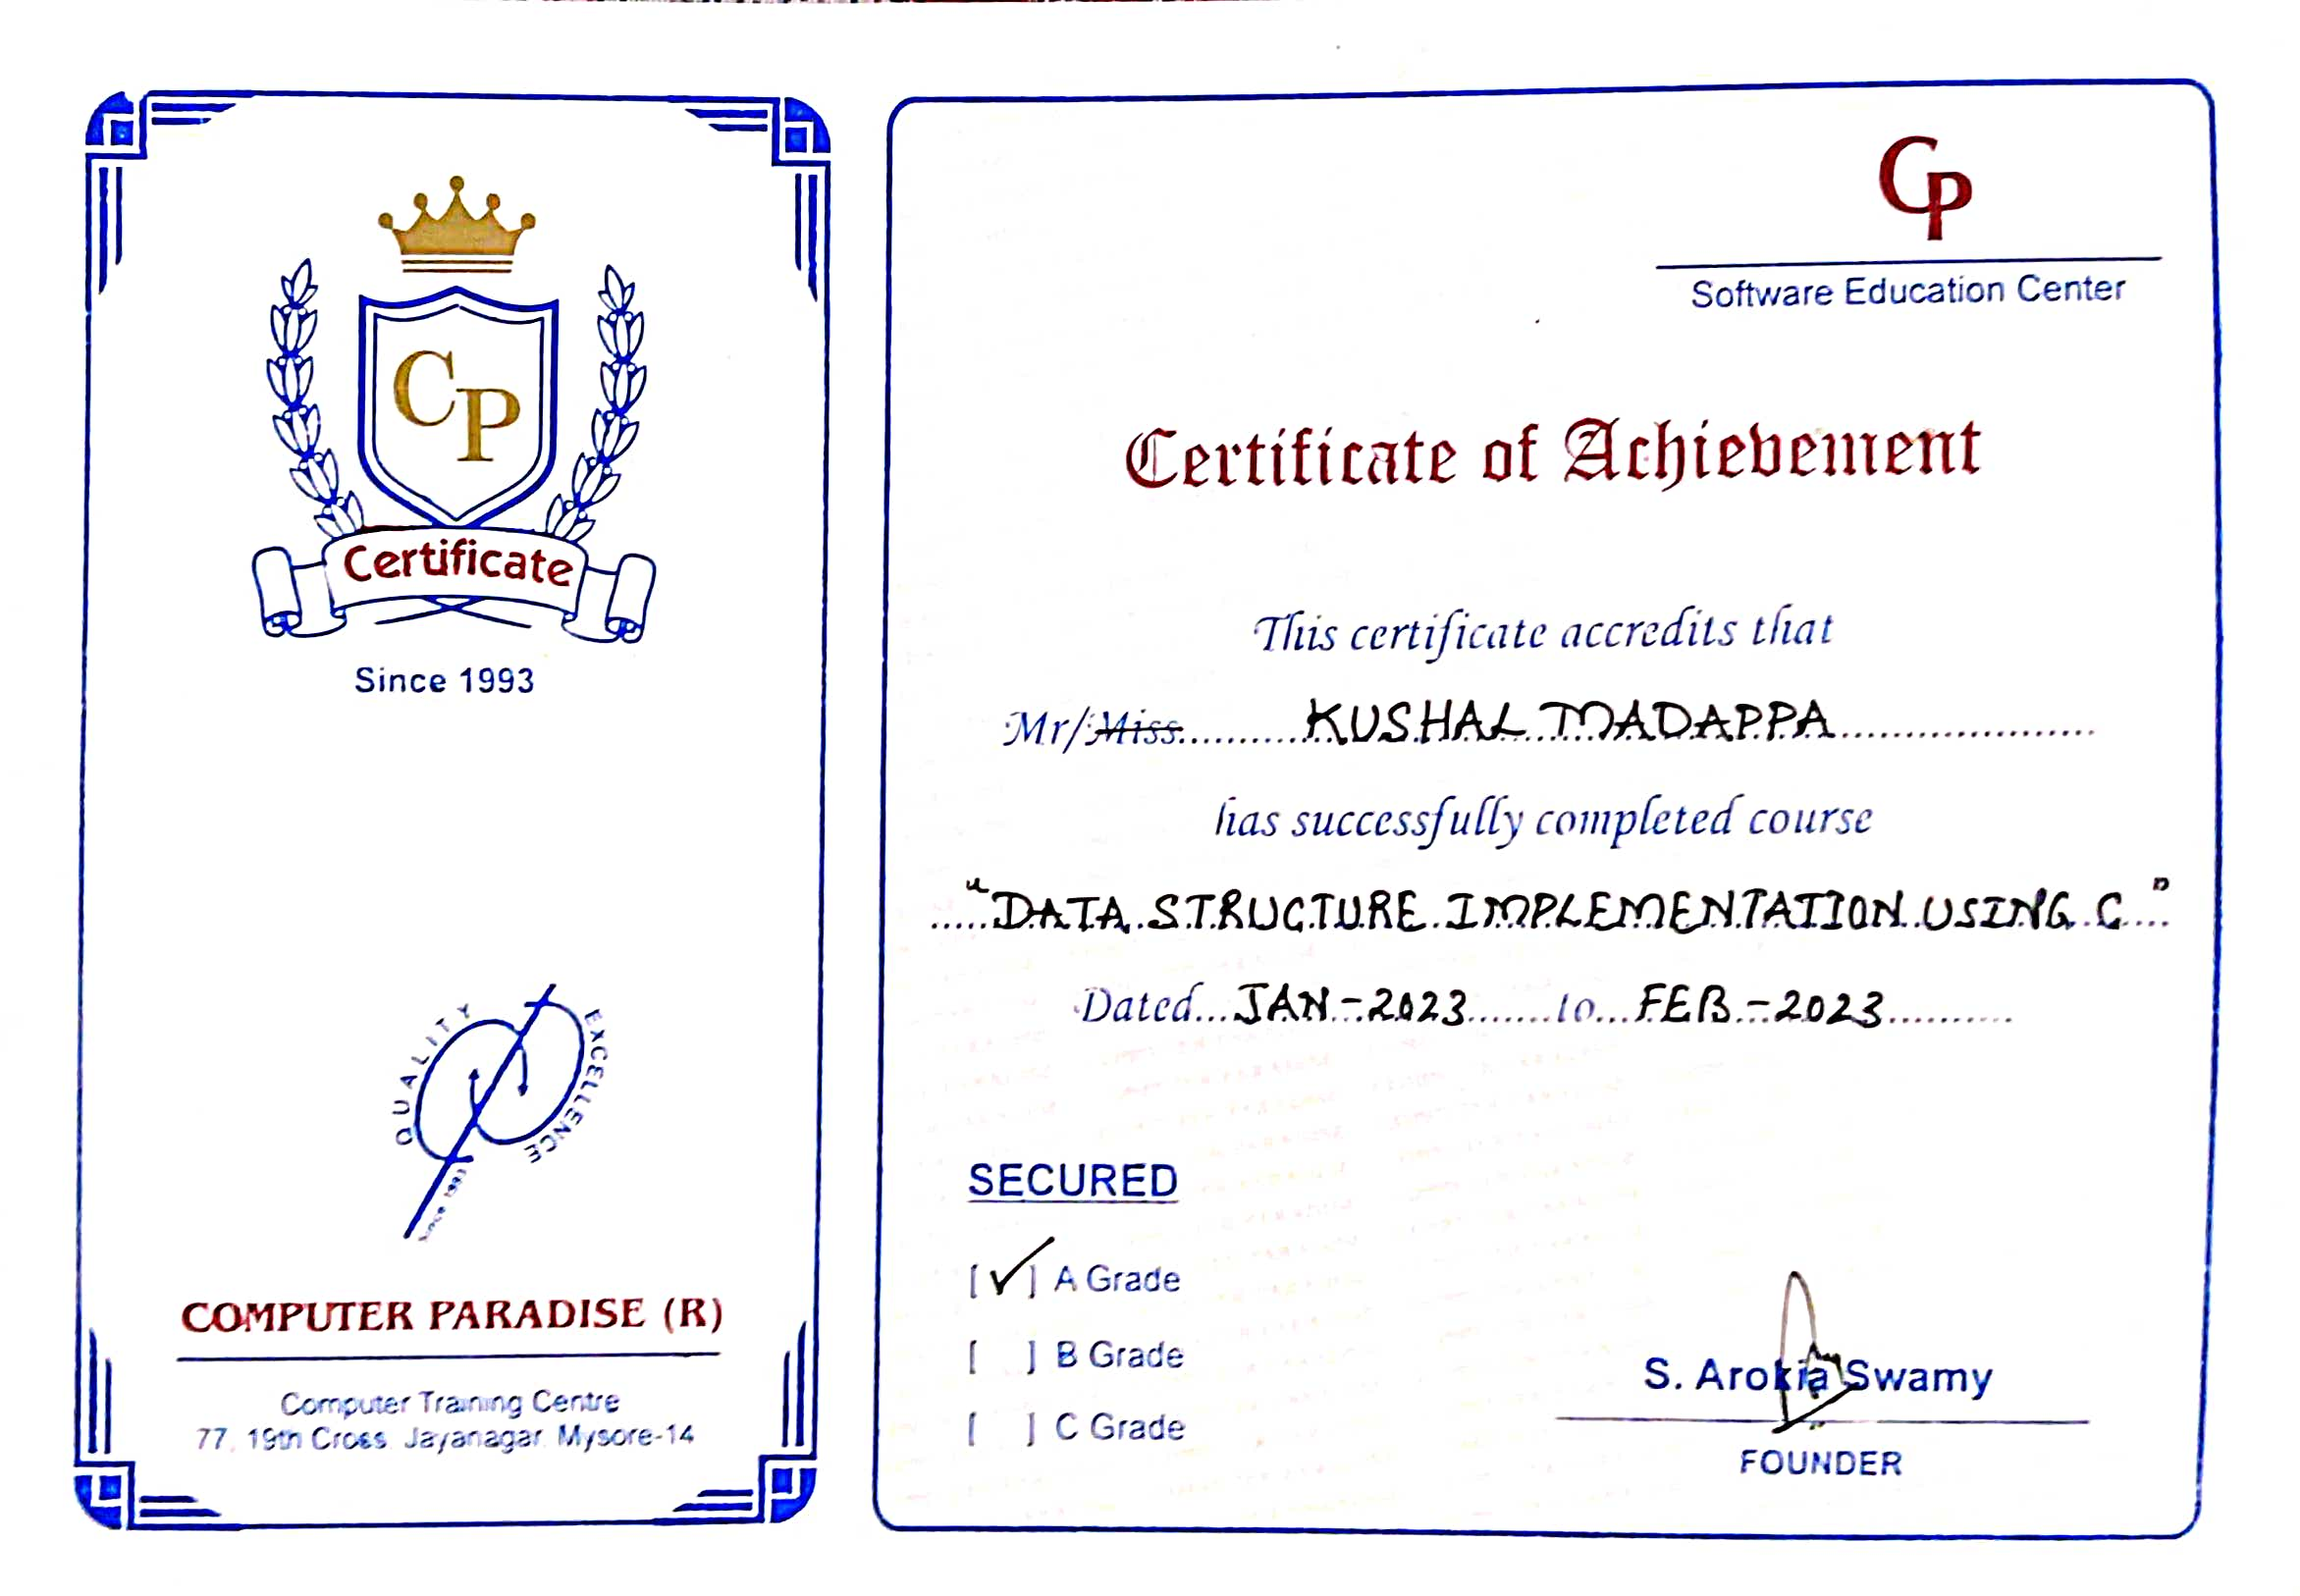 CP
Certificate
Since 1993
QUALITY EXCELLENCE
COMPUTER PARADISE (R)
Computer Training Centre
77, 19th Cross Jayanagar Mysore-14
CP
Software Education Center
Certificate of Achievement
This certificate accredits that
Mr/Miss KUSHAL MADAPPA
has successfully completed course
"DATA STRUCTURE IMPLEMENTATION USING C"
Dated JAN-2023 to FEB-2023
SECURED
[✓] A Grade
[ ] B Grade
[ ] C Grade
S. Arokia Swamy
FOUNDER